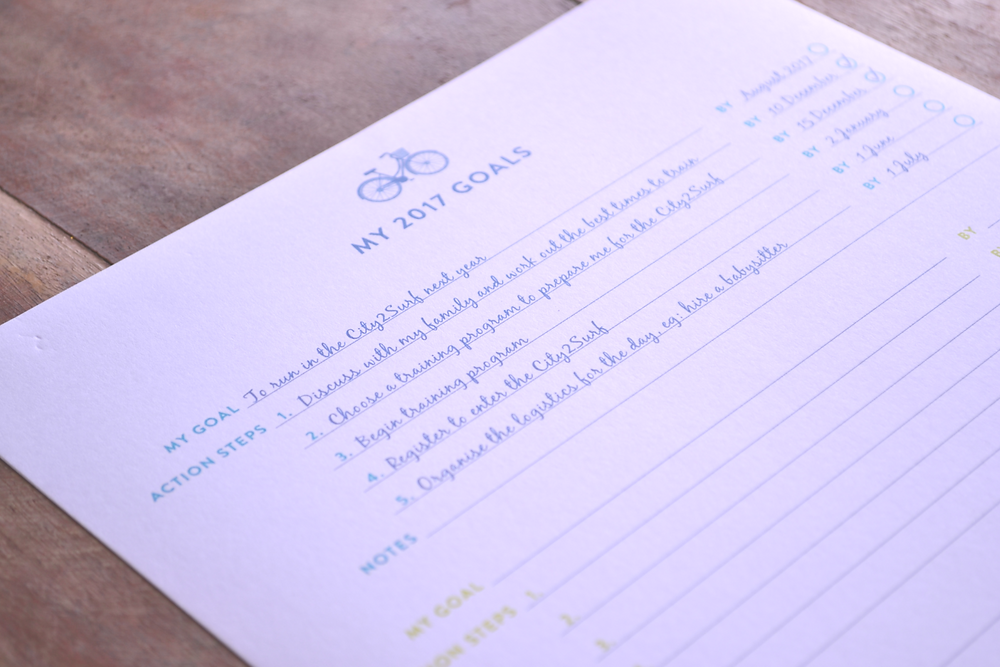 MY 2017 GOALS
MY GOAL To run in the City2Surf next year BY August 2017
ACTION STEPS 1. Discuss with my family and work out the best times to train BY 10 December
2. Choose a training program to prepare me for the City2Surf BY 15 December
3. Begin training program BY 2 January
4. Register to enter the City2Surf BY 1 June
5. Organise the logistics for the day, eg: hire a babysitter BY 1 July
NOTES
MY GOAL BY
ON STEPS 1.
2.
3.